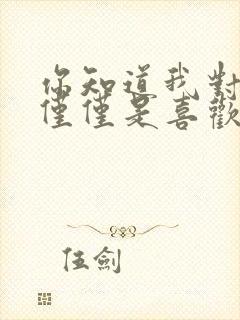 你知道我對
僅僅是喜歡
伍劍